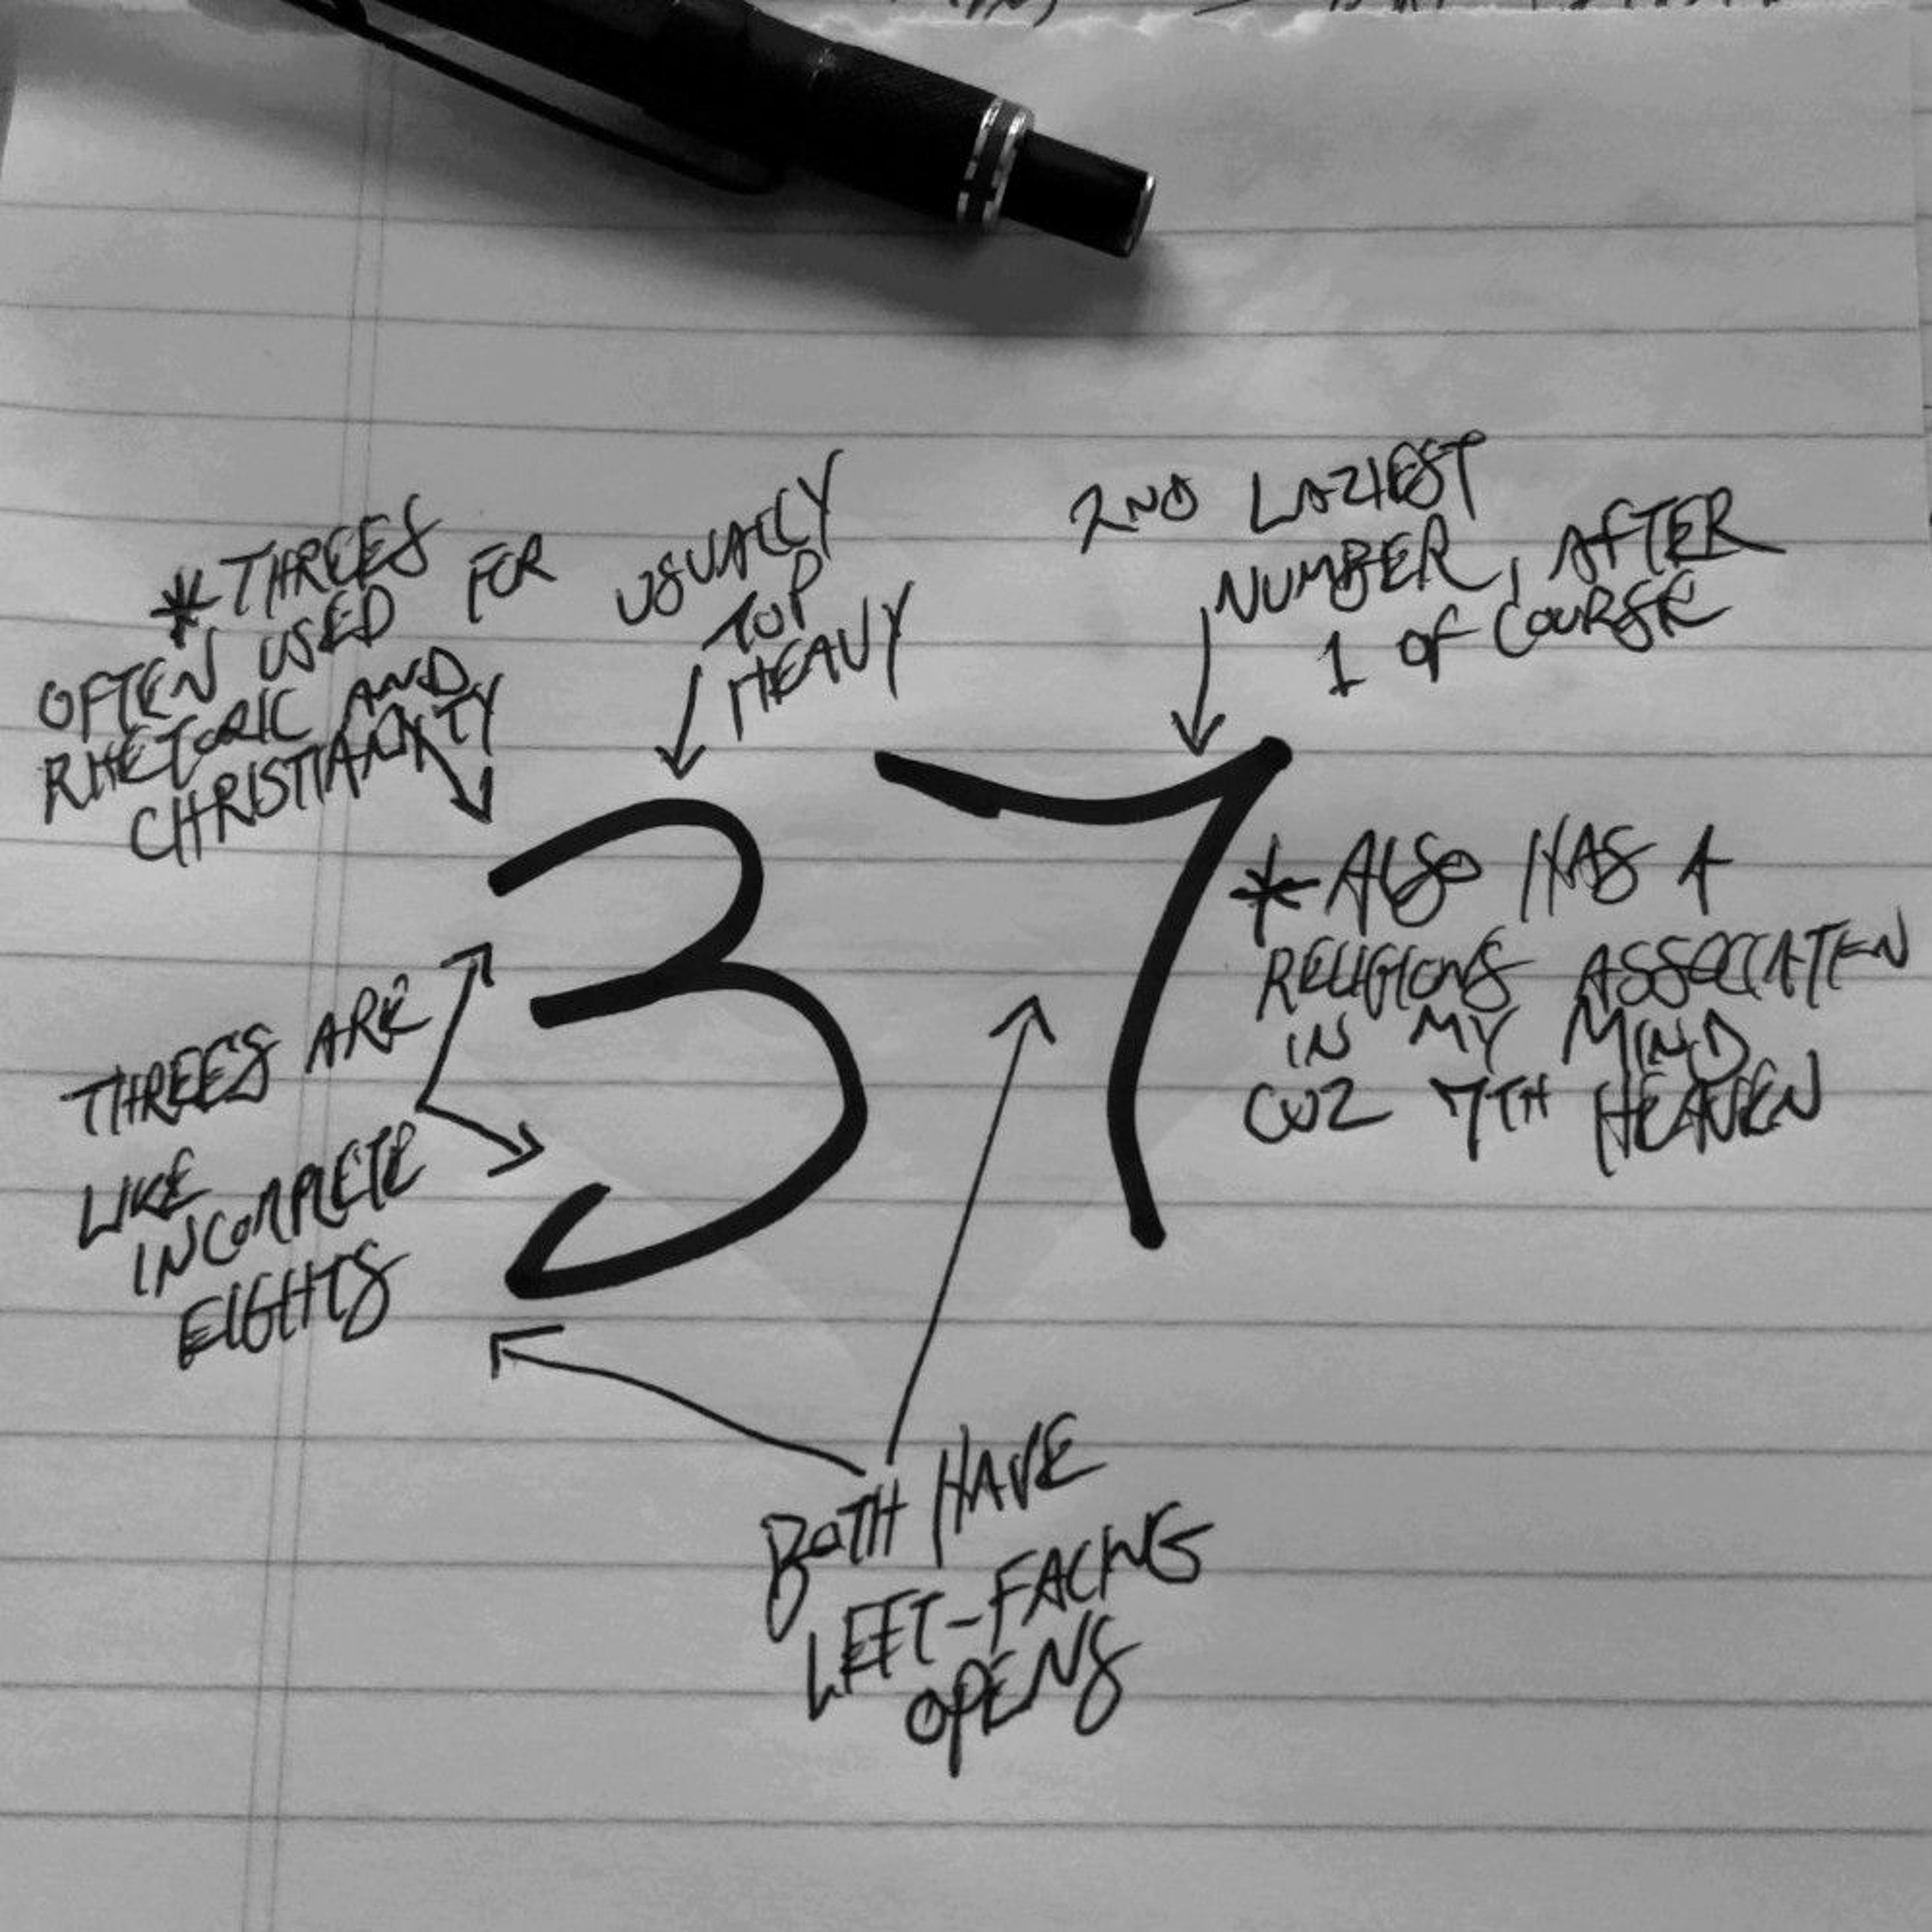 * THREES
OFTEN USED FOR
RHETORIC AND
CHRISTIANITY
USUALLY
TOP
HEAVY
2ND LAZIEST
NUMBER, AFTER
1 OF COURSE
37
* ALSO HAS A
RELIGIONS ASSOCIATEN
IN MY MIND
CUZ 7TH HEAVEN
THREES ARE
LIKE
INCOMPLETE
EIGHTS
BOTH HAVE
LEFT-FACING
OPENS